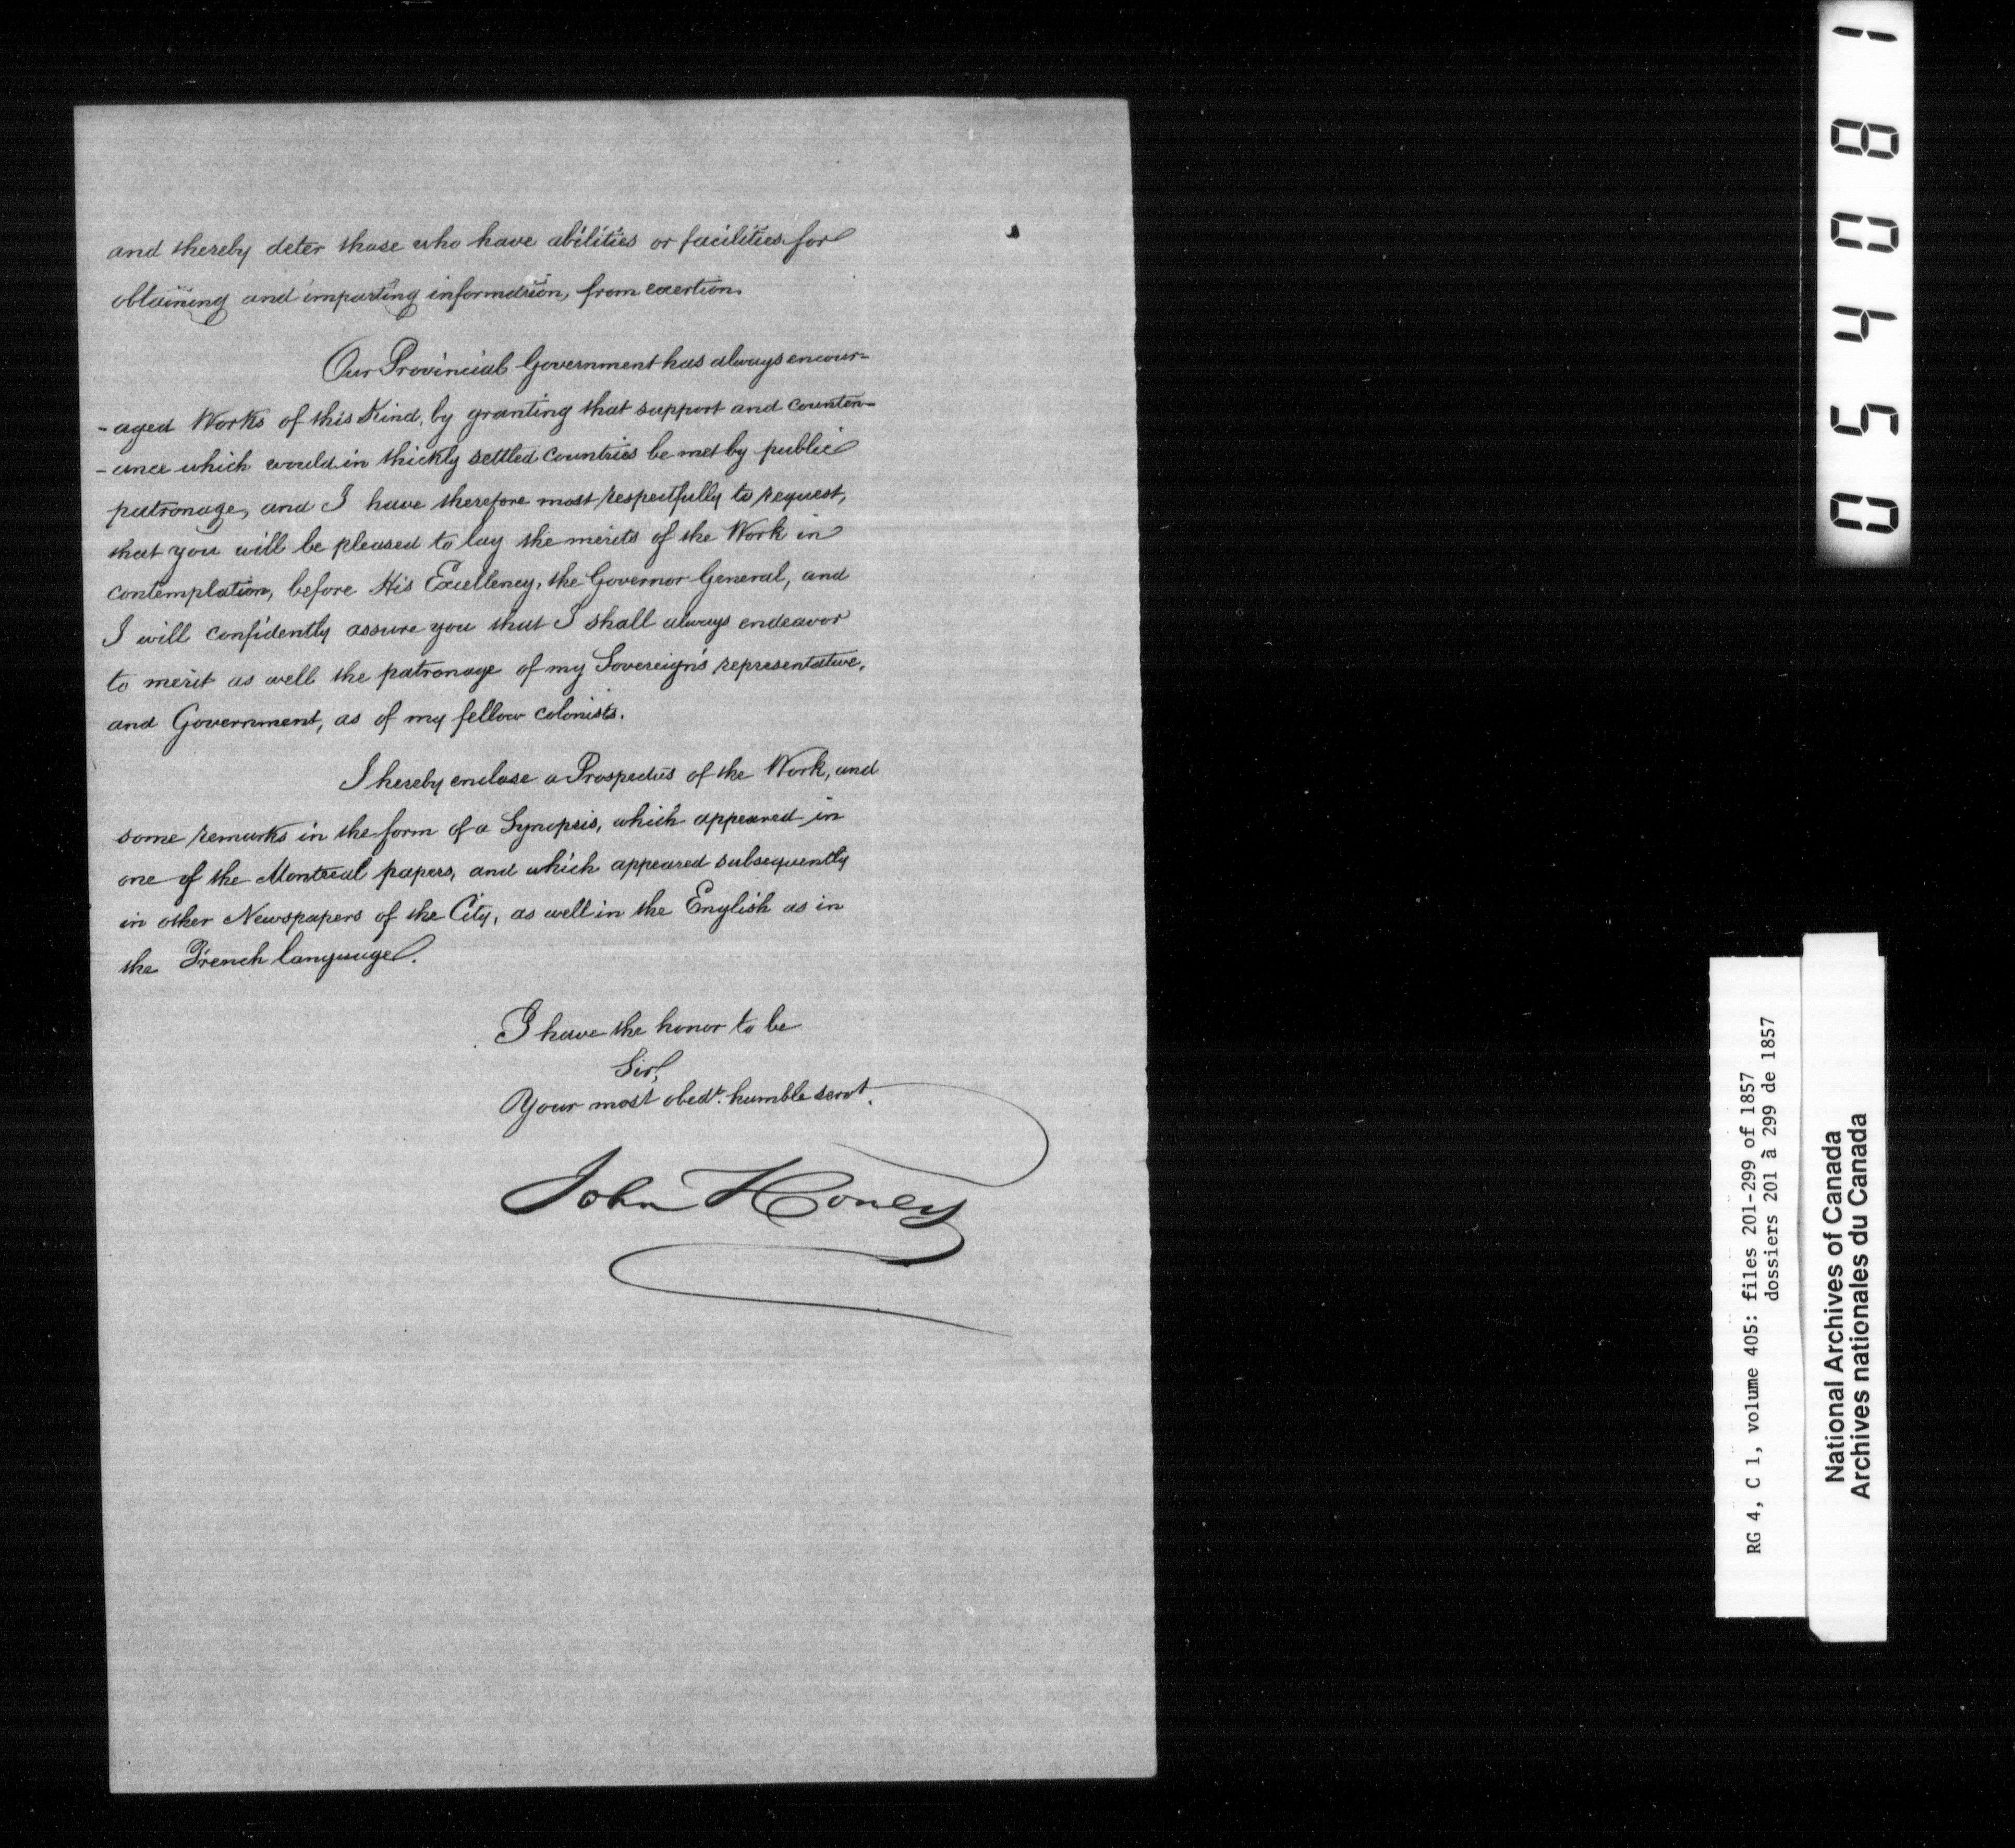 and thereby deter those who have abilities or facilities for
obtaining and imparting information, from exertion.
Our Provincial Government has always encour-
-aged Works of this Kind, by granting that support and counten-
-ance which would in thickly settled Countries be met by public
patronage, and I have therefore most respectfully to request,
that you will be pleased to lay the merits of the Work in
contemplation, before His Excellency, the Governor General, and
I will confidently assure you that I shall always endeavor
to merit as well the patronage of my Sovereign's representative,
and Government, as of my fellow colonists.
I hereby enclose a Prospectus of the Work, and
some remarks in the form of a Synopsis, which appeared in
one of the Montreal papers, and which appeared subsequently
in other Newspapers of the City, as well in the English as in
the French language.
I have the honor to be
Sir,
Your most obedt. humble servt.
John Honey
054081
RG 4, C 1, volume 405: files 201-299 of 1857
dossiers 201 à 299 de 1857
National Archives of Canada
Archives nationales du Canada